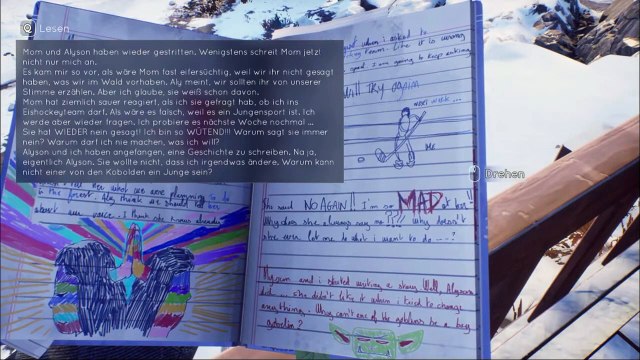 Lesen
Mom und Alyson haben wieder gestritten. Wenigstens schreit Mom jetzt
nicht nur mich an.
Es kam mir so vor, als wäre Mom fast eifersüchtig, weil wir ihr nicht gesagt
haben, was wir im Wald vorhaben. Aly meint, wir sollten ihr von unserer
Stimme erzählen. Aber ich glaube, sie weiß schon davon.
Mom hat ziemlich sauer reagiert, als ich sie gefragt hab, ob ich ins
Eishockeyteam darf. Als wäre es falsch, weil es ein Jungensport ist. Ich
werde aber wieder fragen. Ich probiere es nächste Woche nochmal ...
Sie hat WIEDER nein gesagt! Ich bin so WÜTEND!!! Warum sagt sie immer
nein? Warum darf ich nie machen, was ich will?
Alyson und ich haben angefangen, eine Geschichte zu schreiben. Na ja,
eigentlich Alyson. Sie wollte nicht, dass ich irgendwas ändere. Warum kann
nicht einer von den Kobolden ein Junge sein?
what we were planning to do
in the forest. Aly thinks we should tell her
about our voice. I think she knows already
when I asked to
hockey team. Like it is wrong
sport. I am going to keep asking
Will try again
next week...
ME
She said NO AGAIN!! I'm so MAD at her!!
Why does she always say no??!! Why doesn't
she ever let me do what I want to do ---?
Alyson and I started writing a story. Well, Alyson
did ... She didn't like it when I tried to change
anything. Why can't one of the goblins be a boy
goblin?
Drehen